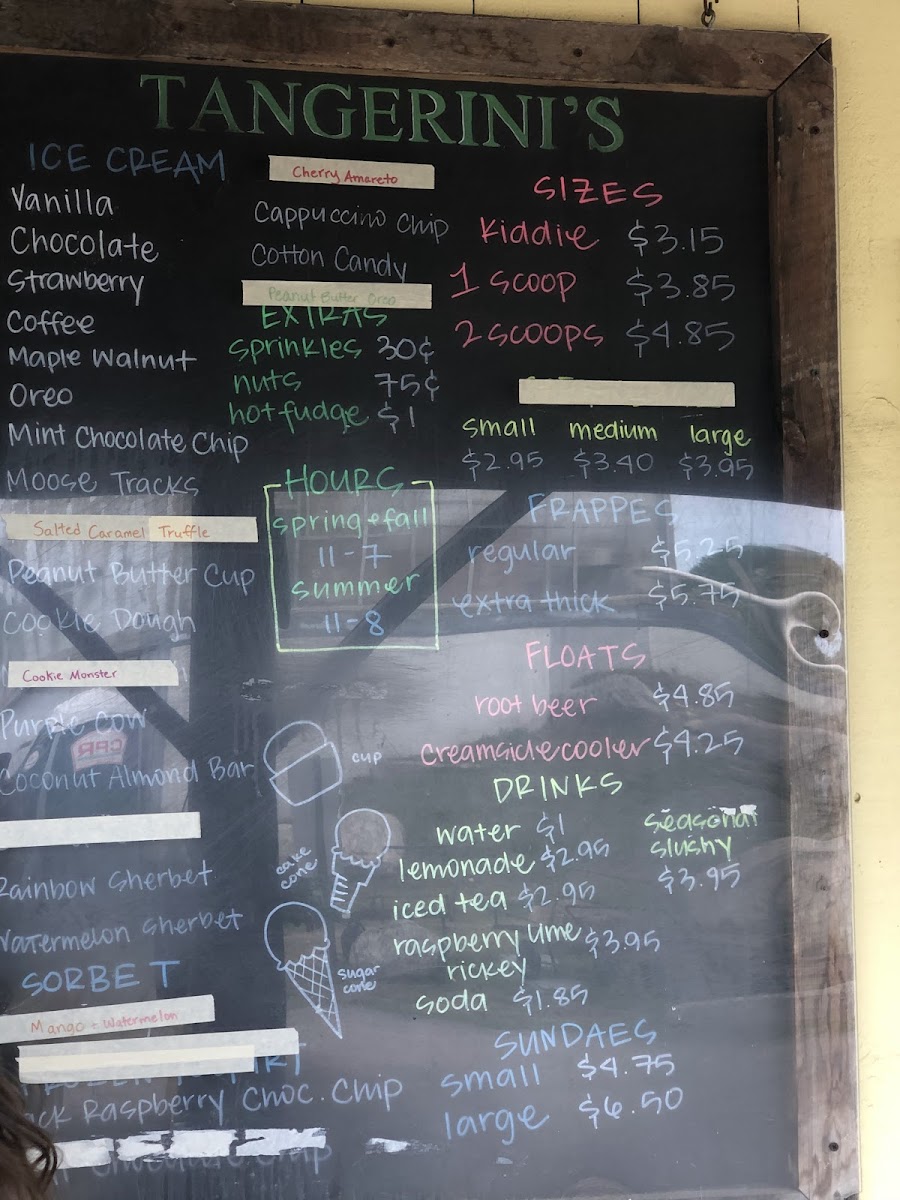 TANGERINI'S
ICE CREAM
Vanilla
Chocolate
Strawberry
Coffee
Maple Walnut
Oreo
Mint Chocolate Chip
Moose Tracks
Salted Caramel Truffle
Peanut Butter Cup
Cookie Dough
Cookie Monster
Purple Cow
Coconut Almond Bar
Rainbow Sherbet
Watermelon Sherbet
SORBET
Mango + Watermelon
Raspberry Choc. Chip
Cherry Amareto
Cappuccino Chip
Cotton Candy
Peanut Butter Oreo
EXTRAS
sprinkles 30¢
nuts 75¢
hot fudge $1
HOURS
spring & fall
11-7
summer
11-8
cup
cake
cone
sugar
cone
SIZES
Kiddie $3.15
1 scoop $3.85
2 scoops $4.85
small medium large
$2.95 $3.40 $3.95
FRAPPES
regular $5.25
extra thick $5.75
FLOATS
root beer $4.85
creamsicle cooler $4.25
DRINKS
water $1
lemonade $2.95
iced tea $2.95
raspberry lime $3.95
rickey
soda $1.85
seasonal
slushy
$3.95
SUNDAES
small $4.75
large $6.50